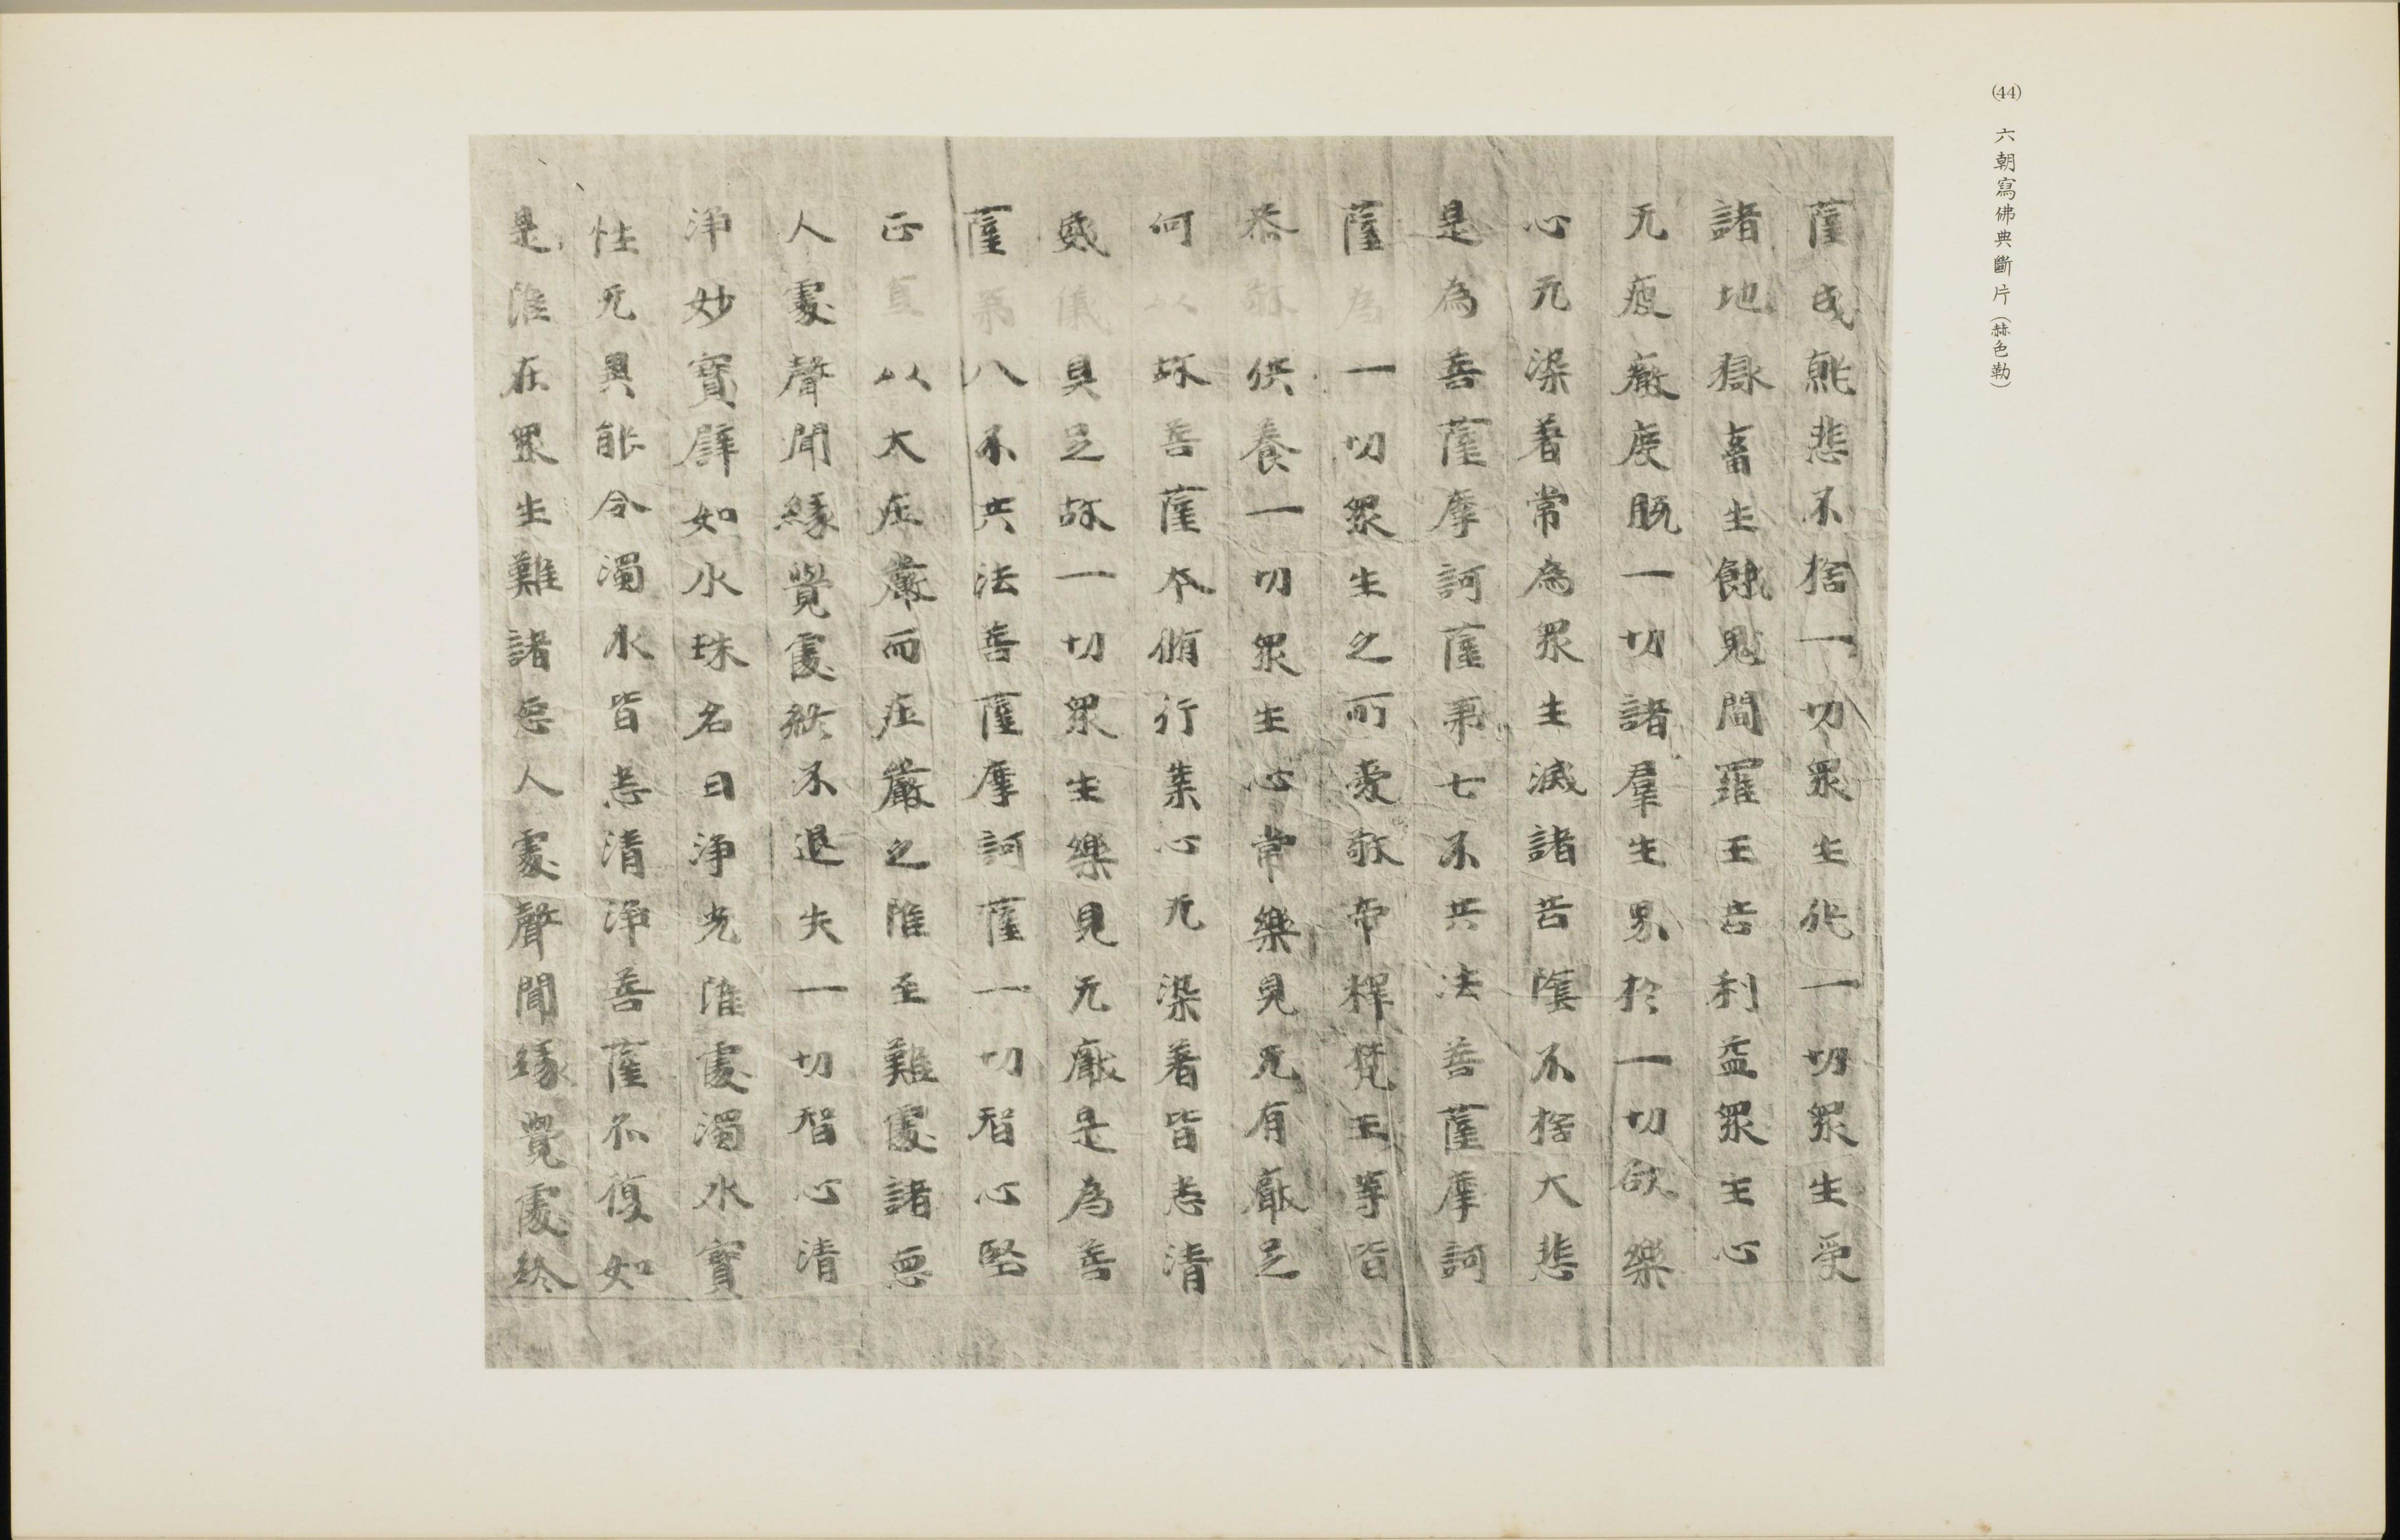 (44) 六朝寫佛典斷片(赫色勒)
薩成熊悲不捨一切眾生代一切眾生受
諸地獄畜生餓鬼閻羅王苦利益眾生心
无疲厭度脫一切諸羣生界於一切欲樂
心无染著常為眾生滅諸苦陰不捨大悲
是為菩薩摩訶薩第七不共法菩薩摩訶
薩為一切眾生之所愛敬帝釋梵王等皆
恭敬供養一切眾生心常樂見无有厭足
何以故菩薩本脩行業心无染著皆悉清
威儀具足故一切眾生樂見无厭是為菩
薩第八不共法菩薩摩訶薩一切智心堅
正直以大庄嚴而庄嚴之雖至難處諸惡
人處聲聞緣覺處終不退失一切智心清
淨妙寶譬如水珠名曰淨光雖處濁水寶
性无異能令濁水皆悉清淨菩薩亦復如
是雖在眾生難諸惡人處聲聞緣覺處終